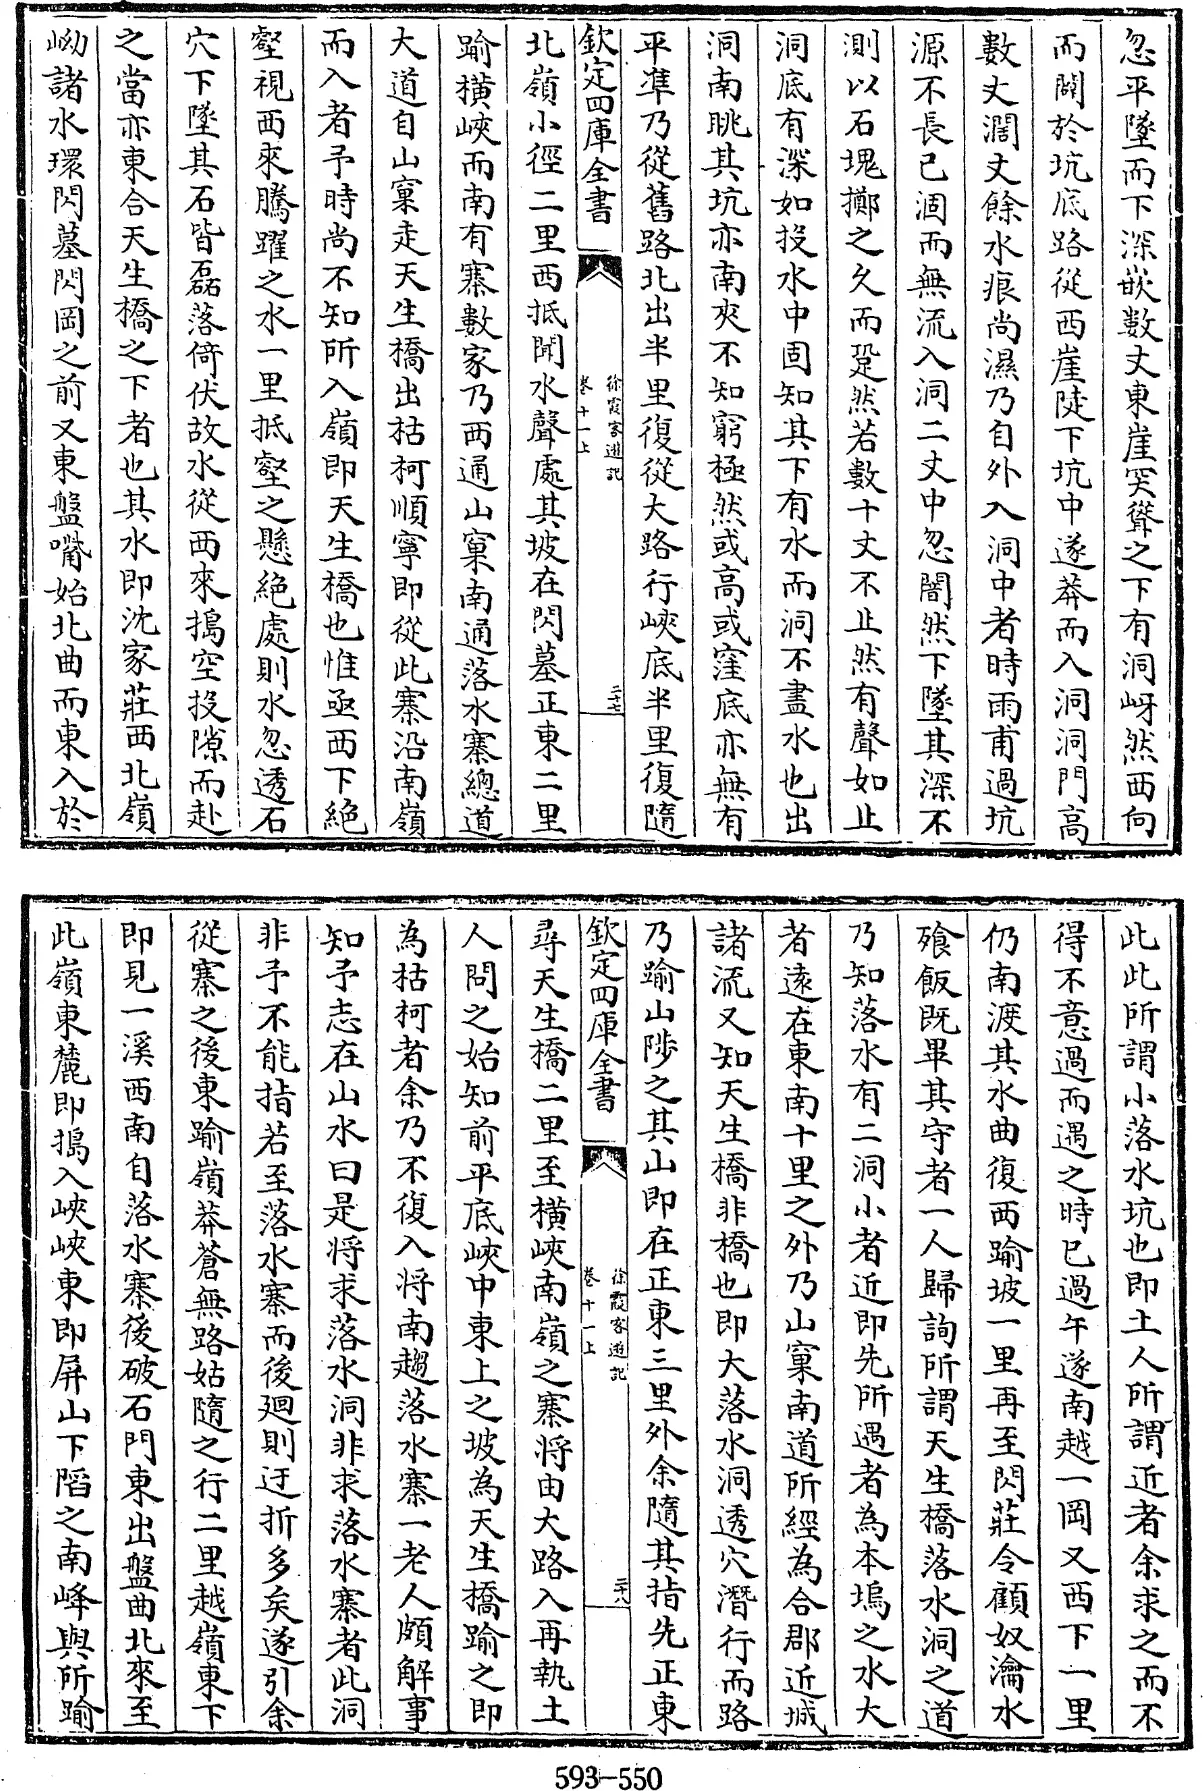 忽平墜而下深嵌數丈東崖突聳之下有洞岈然西向
而闢於坑底路從西崖陡下坑中遂莽而入洞洞門高
數丈濶丈餘水痕尚濕乃自外入洞中者時雨甫過坑
源不長已涸而無流入洞二丈中忽闇然下墜其深不
測以石塊擲之久而跫然若數十丈不止然有聲如止
洞底有深如投水中固知其下有水而洞不盡水也出
洞南眺其坑亦南夾不知窮極然或高或窪底亦無有
平準乃從舊路北出半里復從大路行峽底半里復隨
欽定四庫全書
徐霞客遊記
卷十一上
二十七
北嶺小徑二里西抵聞水聲處其坡在閃墓正東二里
踰橫峽而南有寨數家乃西通山窠南通落水寨總道
大道自山窠走天生橋出枯柯順寧即從此寨沿南嶺
而入者予時尚不知所入嶺即天生橋也惟亟西下絕
壑視西來騰躍之水一里抵壑之懸絕處則水忽透石
穴下墜其石皆磊落倚伏故水從西來搗空投隙而赴
之當亦東合天生橋之下者也其水即沈家莊西北嶺
坳諸水環閃墓閃岡之前又東盤嘴始北曲而東入於
此此所謂小落水坑也即土人所謂近者余求之而不
得不意過而遇之時已過午遂南越一岡又西下一里
仍南渡其水曲復西踰坡一里再至閃莊令顧奴瀹水
飱飯既畢其守者一人歸詢所謂天生橋落水洞之道
乃知落水有二洞小者近即先所遇者為本塢之水大
者遠在東南十里之外乃山窠南道所經為合郡近城
諸流又知天生橋非橋也即大落水洞透穴潛行而路
乃踰山陟之其山即在正東三里外余隨其指先正東
欽定四庫全書
徐霞客遊記
卷十一上
二十八
尋天生橋二里至橫峽南嶺之寨將由大路入再執土
人問之始知前平底峽中東上之坡為天生橋踰之即
為枯柯者余乃不復入將南趨落水寨一老人頗解事
知予志在山水曰是將求落水洞非求落水寨者此洞
非予不能指若至落水寨而後廻則迂折多矣遂引余
從寨之後東踰嶺莽蒼無路姑隨之行二里越嶺東下
即見一溪西南自落水寨後破石門東出盤曲北來至
此嶺東麓即搗入峽峽東即屏山下陷之南峰與所踰
593-550